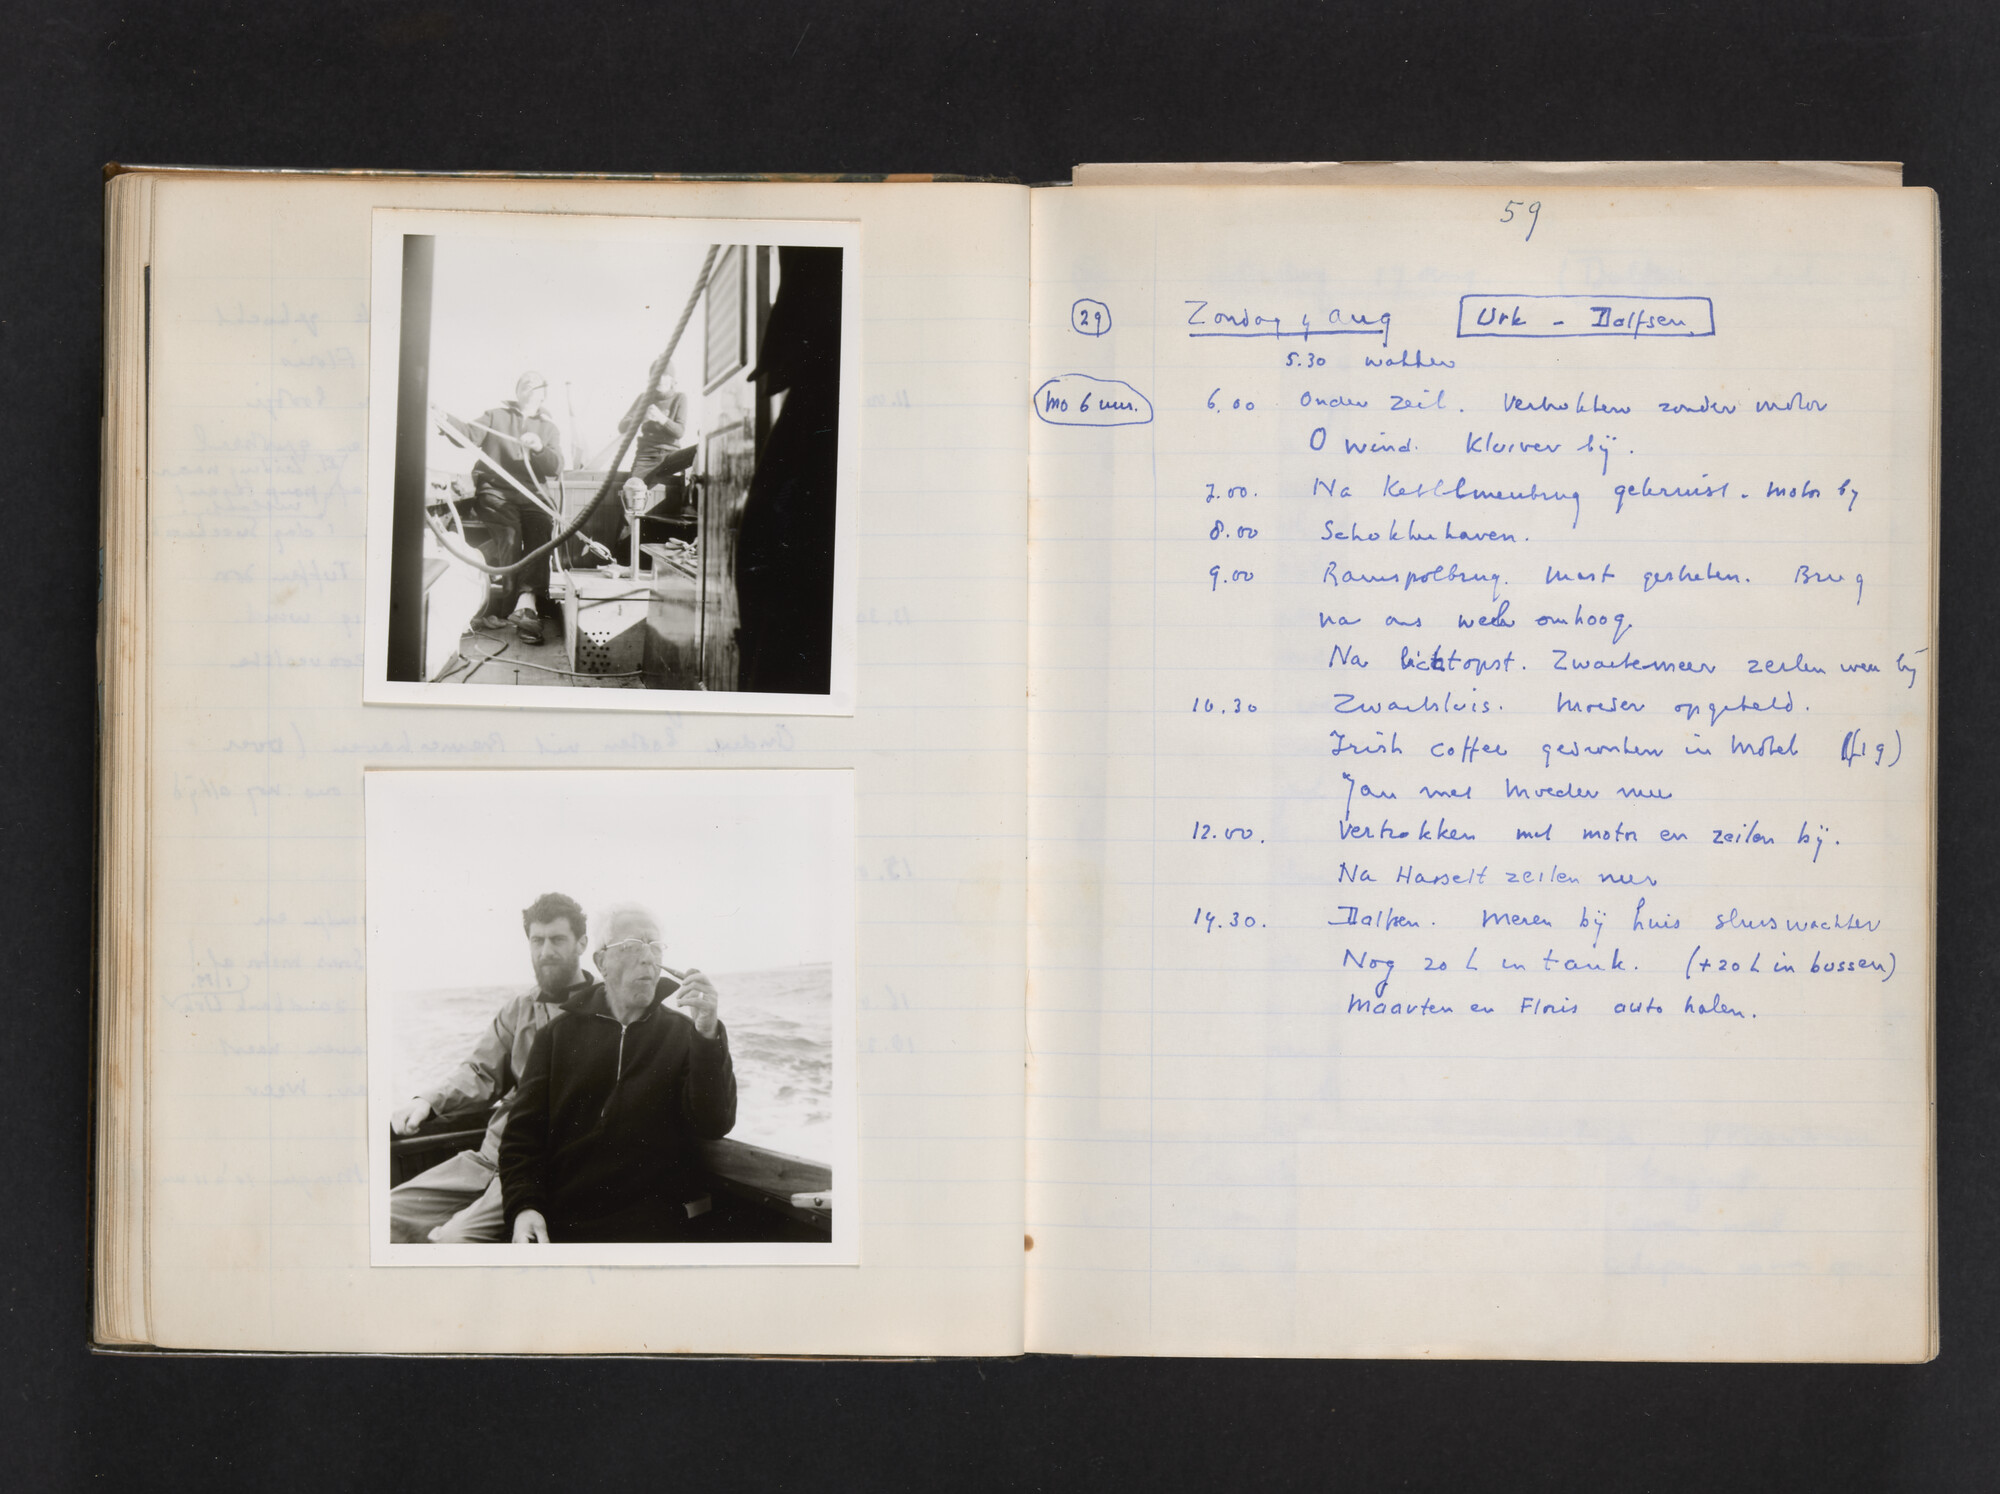 59
29 Zondag 4 Aug Urk - Dalfsen.
5.30 wakker
Mo 6 uur. 6.00 Onder zeil. Vertrokken zonder motor
O wind. Kluiver bij.
7.00. Na Ketelmeerbrug gekruist. Motor bij
8.00 Schokkerhaven.
9.00 Ramspolbrug. Mast gestreken. Brug
na ons weer omhoog.
Na lichtopst. Zwartemeer zeilen weer bij
10.30 Zwartsluis. Moeder opgebeld.
Irish coffee gedronken in Motel
Jan met Moeder mee
12.00. Vertrokken met motor en zeilen bij.
Na Hasselt zeilen neer
14.30. Dalfsen. Meren bij huis sluiswachter
Nog 20 L in tank. (+20 L in bussen)
Maarten en Floris auto halen.